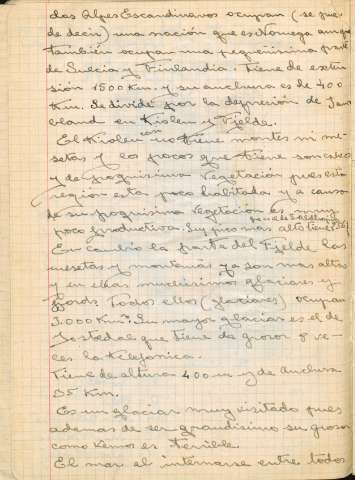 Los Alpes Escandinavos ocupan (se pue-
de decir) una nación que es Noruega aunque
también ocupan una pequeñisima parte
de Suecia y Finlandia. Tiene de exten-
sión 1500 Km. y su anchura es de 400
Km. Se divide por la depresión de Jam
bland en Kiolen y Fjelde.
El Kiolen no tiene montes ni me-
setas y los pocos que tiene son casco
y de poquisima vegetación pues esta
región esta poco habitada y a causa
de su poquisima vegetación es muy
poco productiva. Su pico mas alto tiene
En cambio la parte del Fjelde las
mesetas y montañas ya son mas altas
y en ellas muchisimos glaciares y
fjords. Todos ellos (glaciares) ocupan
3.000 Km². Su mayor glaciar es el de
Jostedal que tiene de grosor 8 ve-
ces la telefonica.
Tiene de altura 400 m y de anchura
35 Km.
Es un glaciar muy visitado pues
ademas de ser grandisimo su grosor
como vemos es terrible.
El mar al internarse entre todos